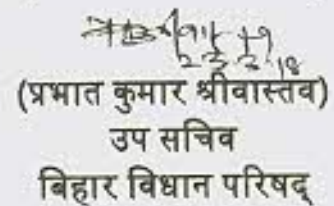 23.3.18
(प्रभात कुमार श्रीवास्तव)
उप सचिव
बिहार विधान परिषद्